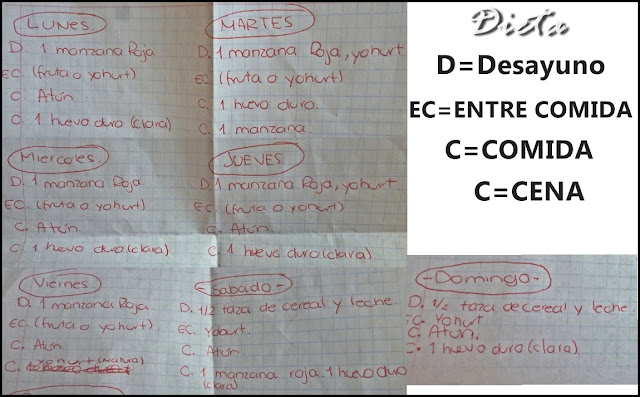 LUNES
D. 1 manzana Roja
EC. (fruta o yohurt)
C. Atún
C. 1 huevo duro (clara)
MARTES
D. 1 manzana Roja, yohurt
EC. (fruta o yohurt)
C. 1 huevo duro.
C. 1 manzana.
Dieta
D=Desayuno
EC=ENTRE COMIDA
C=COMIDA
C=CENA
Miercoles
D. 1 manzana Roja.
EC. (fruta o yohurt)
C. Atun
C. 1 huevo duro (clara)
JUEVES
D. 1 manzana Roja, yohurt
EC. (fruta o yohurt)
C. Atun
C. 1 huevo duro (clara)
Viernes
D. 1 manzana Roja.
EC. (fruta o yohurt).
C. Atún
yohurt (Natural)
C.
-Sabado-
D. 1/2 taza de cereal y leche.
EC. Yohurt
C. Atún
C. 1 manzana roja. 1 huevo duro
(clara)
-Domingo-
D. 1/2 taza de cereal y leche.
EC. Yohurt
C. Atun.
C. 1 huevo duro (clara)